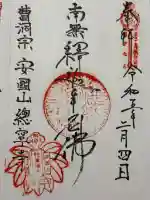 奉拝 令和五年二月四日
南無釋迦牟尼佛
曹洞宗 安國山 總寧寺